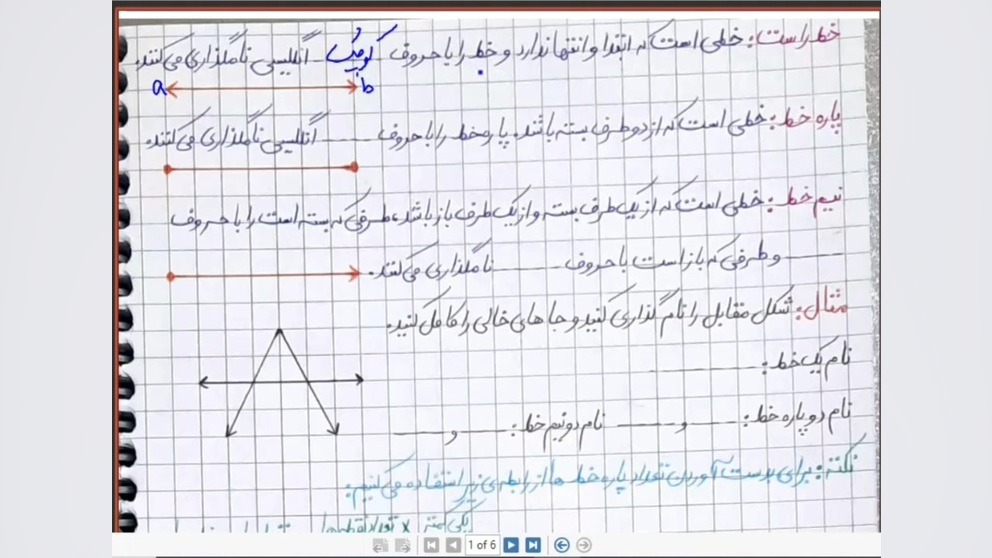 خط راست: خطی است که ابتدا و انتها ندارد و خط را با حروف کوچک انگلیسی نامگذاری می‌کنند.
a b
پاره خط: خطی است که از دو طرف بسته باشد. پاره خط را با حروف ــــــ انگلیسی نامگذاری می‌کنند.
نیم خط: خطی است که از یک طرف بسته و از یک طرف باز باشد، طرفی که بسته است را با حروف
ــــــ و طرفی که باز است با حروف ــــــ نامگذاری می‌کنند.
مثال: شکل مقابل را نام گذاری کنید و جاهای خالی را کامل کنید.
نام یک خط: ــــــ
نام دو پاره خط: ــــــ و ــــــ نام دو نیم خط: ــــــ و ــــــ
نکته: برای بدست آوردن تعداد پاره خط ها از رابطه‌ی زیر استفاده می‌کنیم:
1 of 6